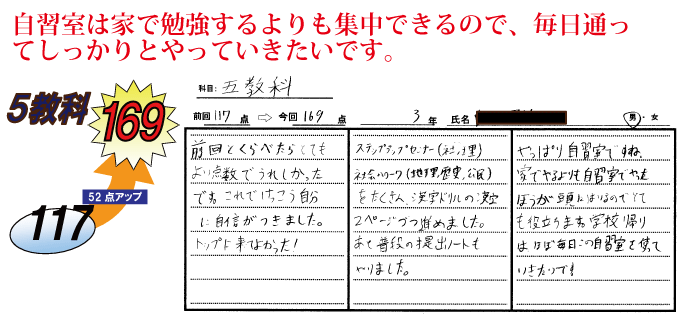 自習室は家で勉強するよりも集中できるので、毎日通っ
てしっかりとやっていきたいです。
5教科
169
52点アップ
117
科目: 五教科
前回 117 点 ⇨ 今回 169 点 3 年 氏名 男・女
前回とくらべたらとても
より点数でうれしかった
です。これでけっこう自分
に自信がつきました。
トップよ来てよかった!
ステップアップセミナー
社会ワーク(地理,歴史,公民)
をたくさん、漢字ドリルの漢字
2ページづつ進めました。
あと普段の提出ノートも
やりました。
やっぱり自習室ですね。
家でやるよりも自習室でやった
ほうが頭にはいるのでとて
も役立ちます。学校帰り
はほぼ毎日この自習室を使って
いきたいです